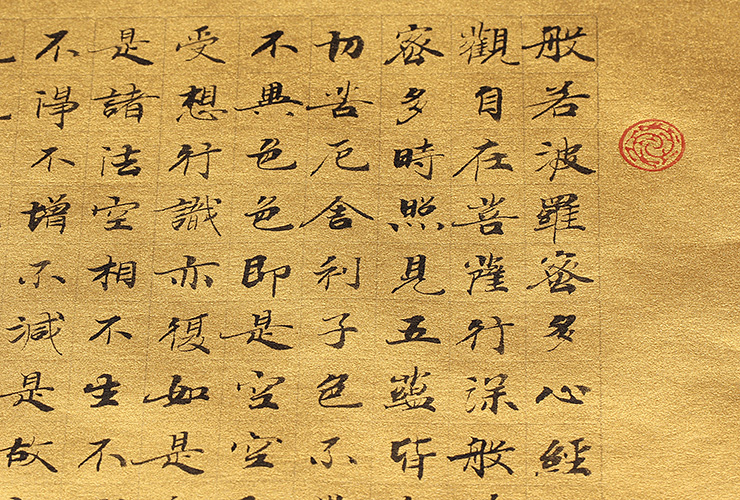 般若波羅蜜多心經
觀自在菩薩行深般
蜜多時照見五蘊皆
切苦厄舍利子色不
不異色色即是空空
受想行識亦復如是
是諸法空相不生不
不淨不增不減是故